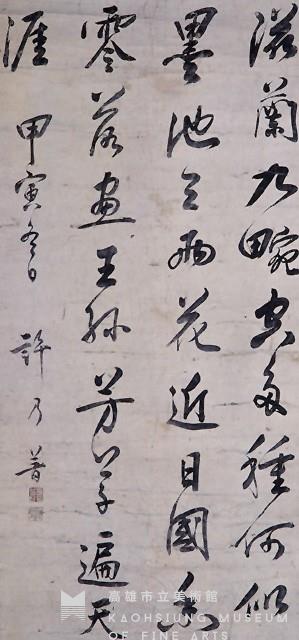 滋蘭九畹空多種何似
墨池三兩花近日國香
零落盡王孫芳草遍天
涯
甲寅冬日 許乃普
高雄市立美術館
KAOHSIUNG MUSEUM
OF FINE ARTS